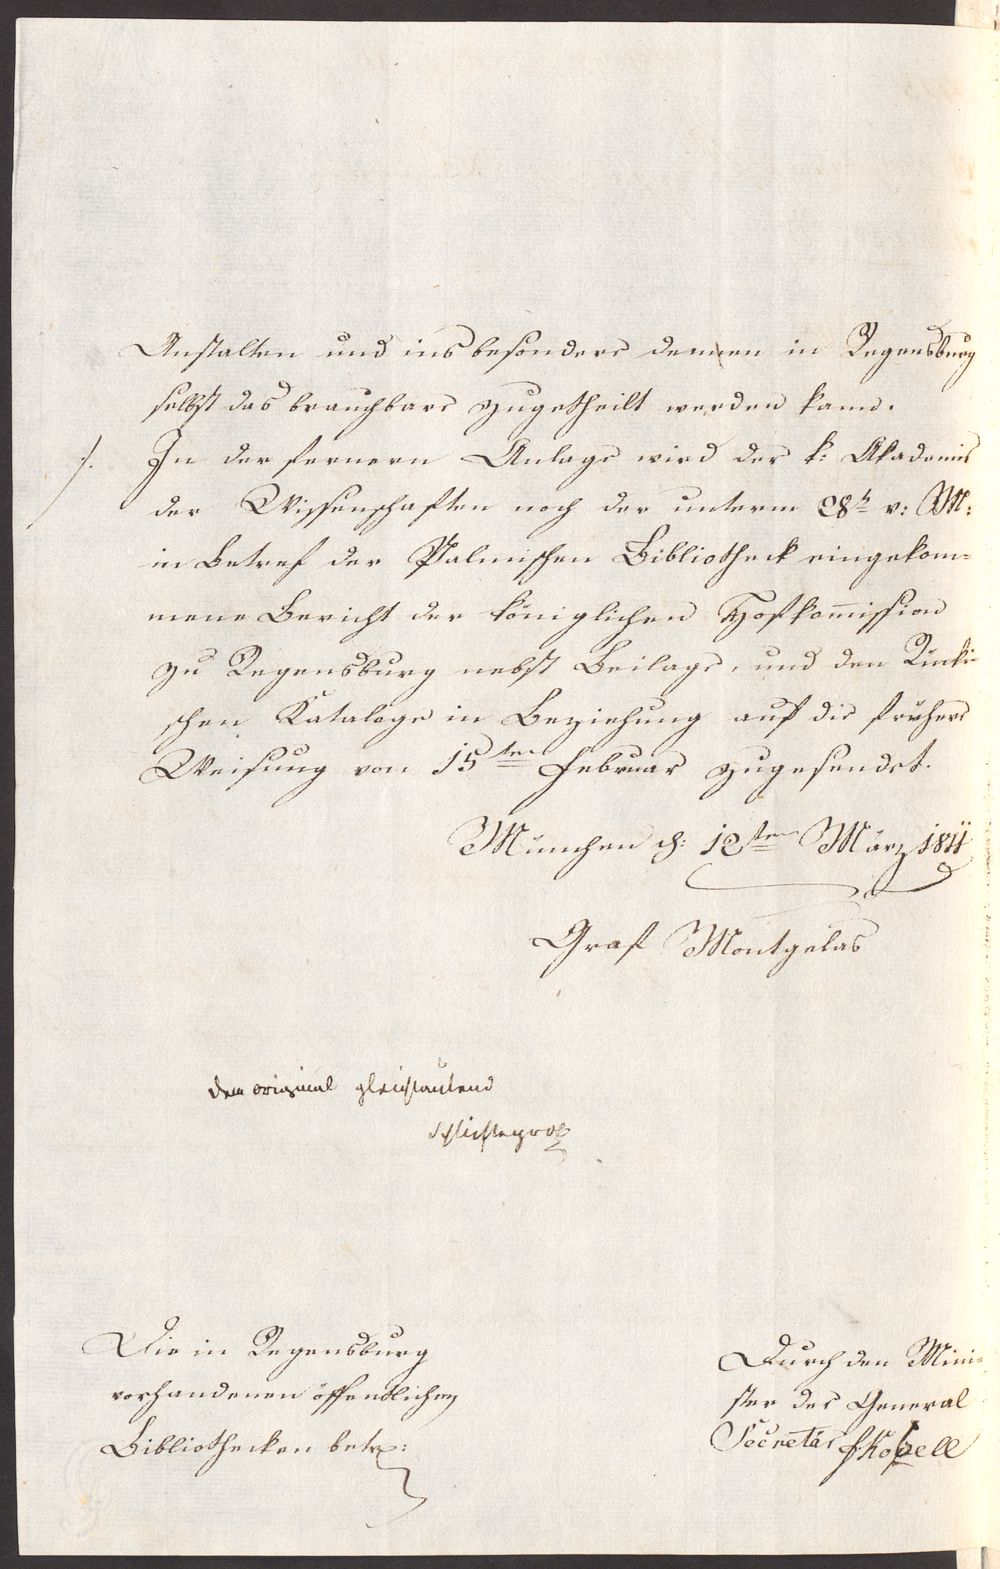 Anstalten und insbesondere dennen in Regensburg
selbst das brauchbare zugetheilt werden kann.
./. In der fernern Anlage wird der k: Akademie
der Wissenschaften noch der unterm 28t v: M:
in Betref der Palmischen Bibliotheck eingekom=
mene Bericht der königlichen Hofkom̄ission
zu Regensburg nebst Beilage, und den
schen Kataloge in Beziehung auf die frühere
Weisung von 15ten Februar zugesendet.
München d: 12ten März 1811
Graf Montgelas
dem original gleichlautend
Schlichtegroll
Die in Regensburg
vorhandenen öffentlichen
Bibliothecken betr:
Durch den Mini=
ster der General
Secretär FKobell